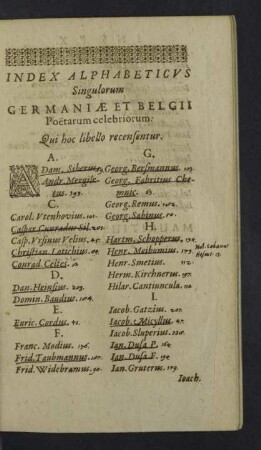 INDEX ALPHABETICVS
Singulorum
GERMANIÆ ET BELGII
Poëtarum celebriorum.
Qui hoc libello recensentur.
A.
ADam. Siberus
Andr. Mergilē-
tus. 193.
C.
Carol. Vtenhovius. 101.
Caspar Cunradus Sil. 201.
Casp. Vrsinus Velius. 47.
Christian. Lotichius.
Conrad. Celtes.
D.
Dan. Heinsius.
Domin. Baudius.
E.
Euric. Cordus. 41.
F.
Franc. Modius.
Frid. Taubmannus.
Frid. Widebramus.
G.
Georg. Bersmannus.
Georg. Fabritius Che-
mnic.
Georg. Remus.
Georg. Sabinus.
H.
Hartm. Schopperus.
Henr. Meibomius. 173.
Henr. Smetius.
Herm. Kirchnerus.
Hilar. Cantiuncula.
I.
Iacob. Gatzius.
Iacob. Micyllus.
Iacob. Sluperius.
Ian. Dusa P.
Ian. Dusa F.
Ian. Gruterus.
Ioach.